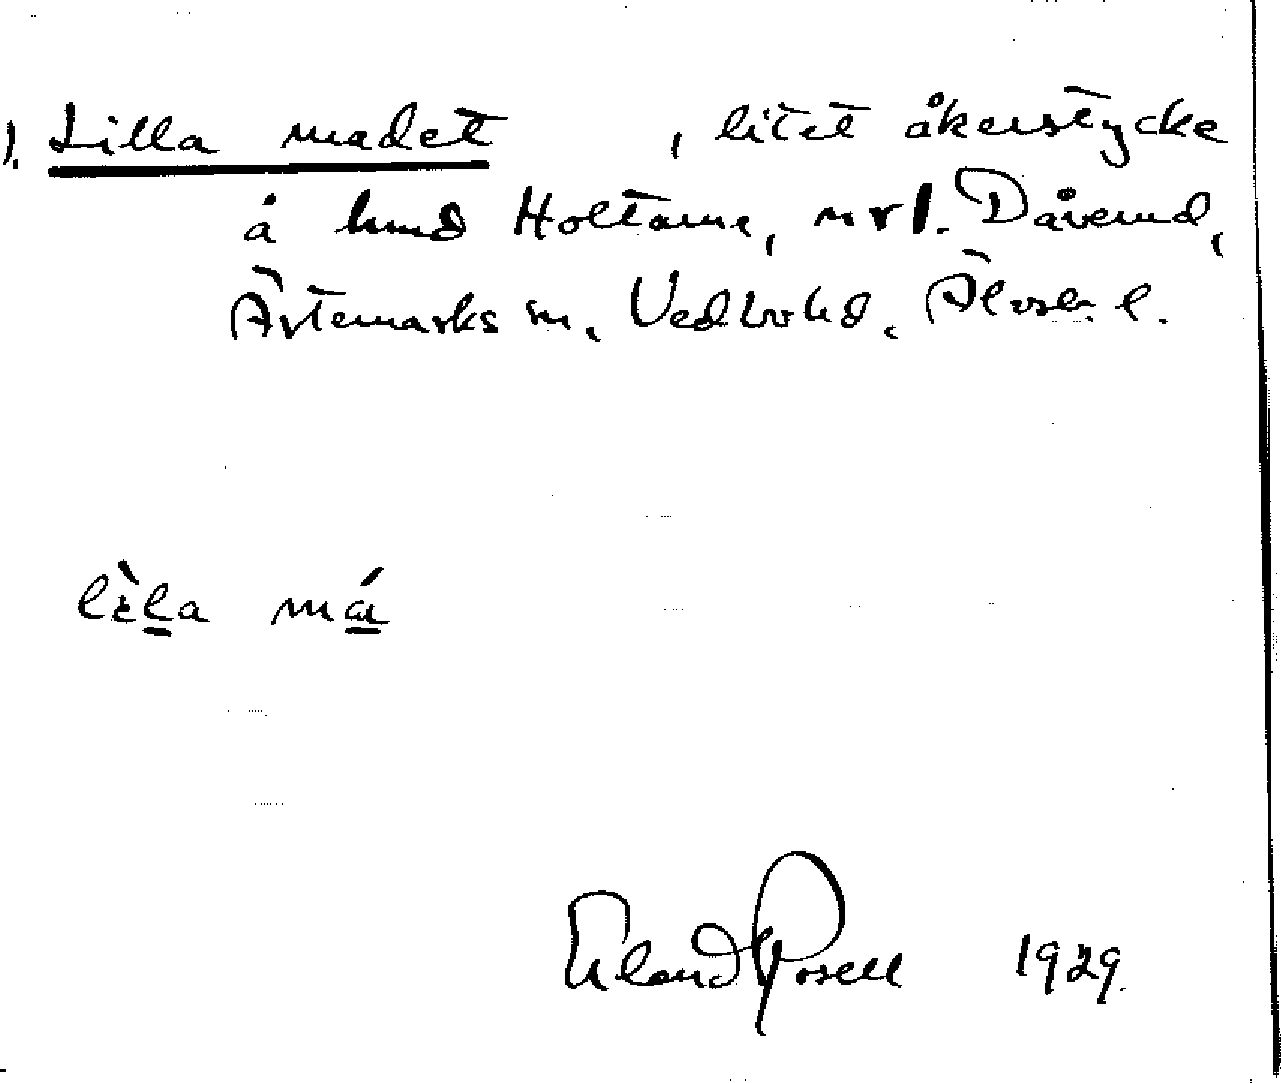 1. Lilla madet , litet åkerstycke
å hmd Holtane, nr 1. Dåverud,
Ärtemarks sn, Vedbo hd, Älvsb. l.
lìla má
Erland Rosell 1929.